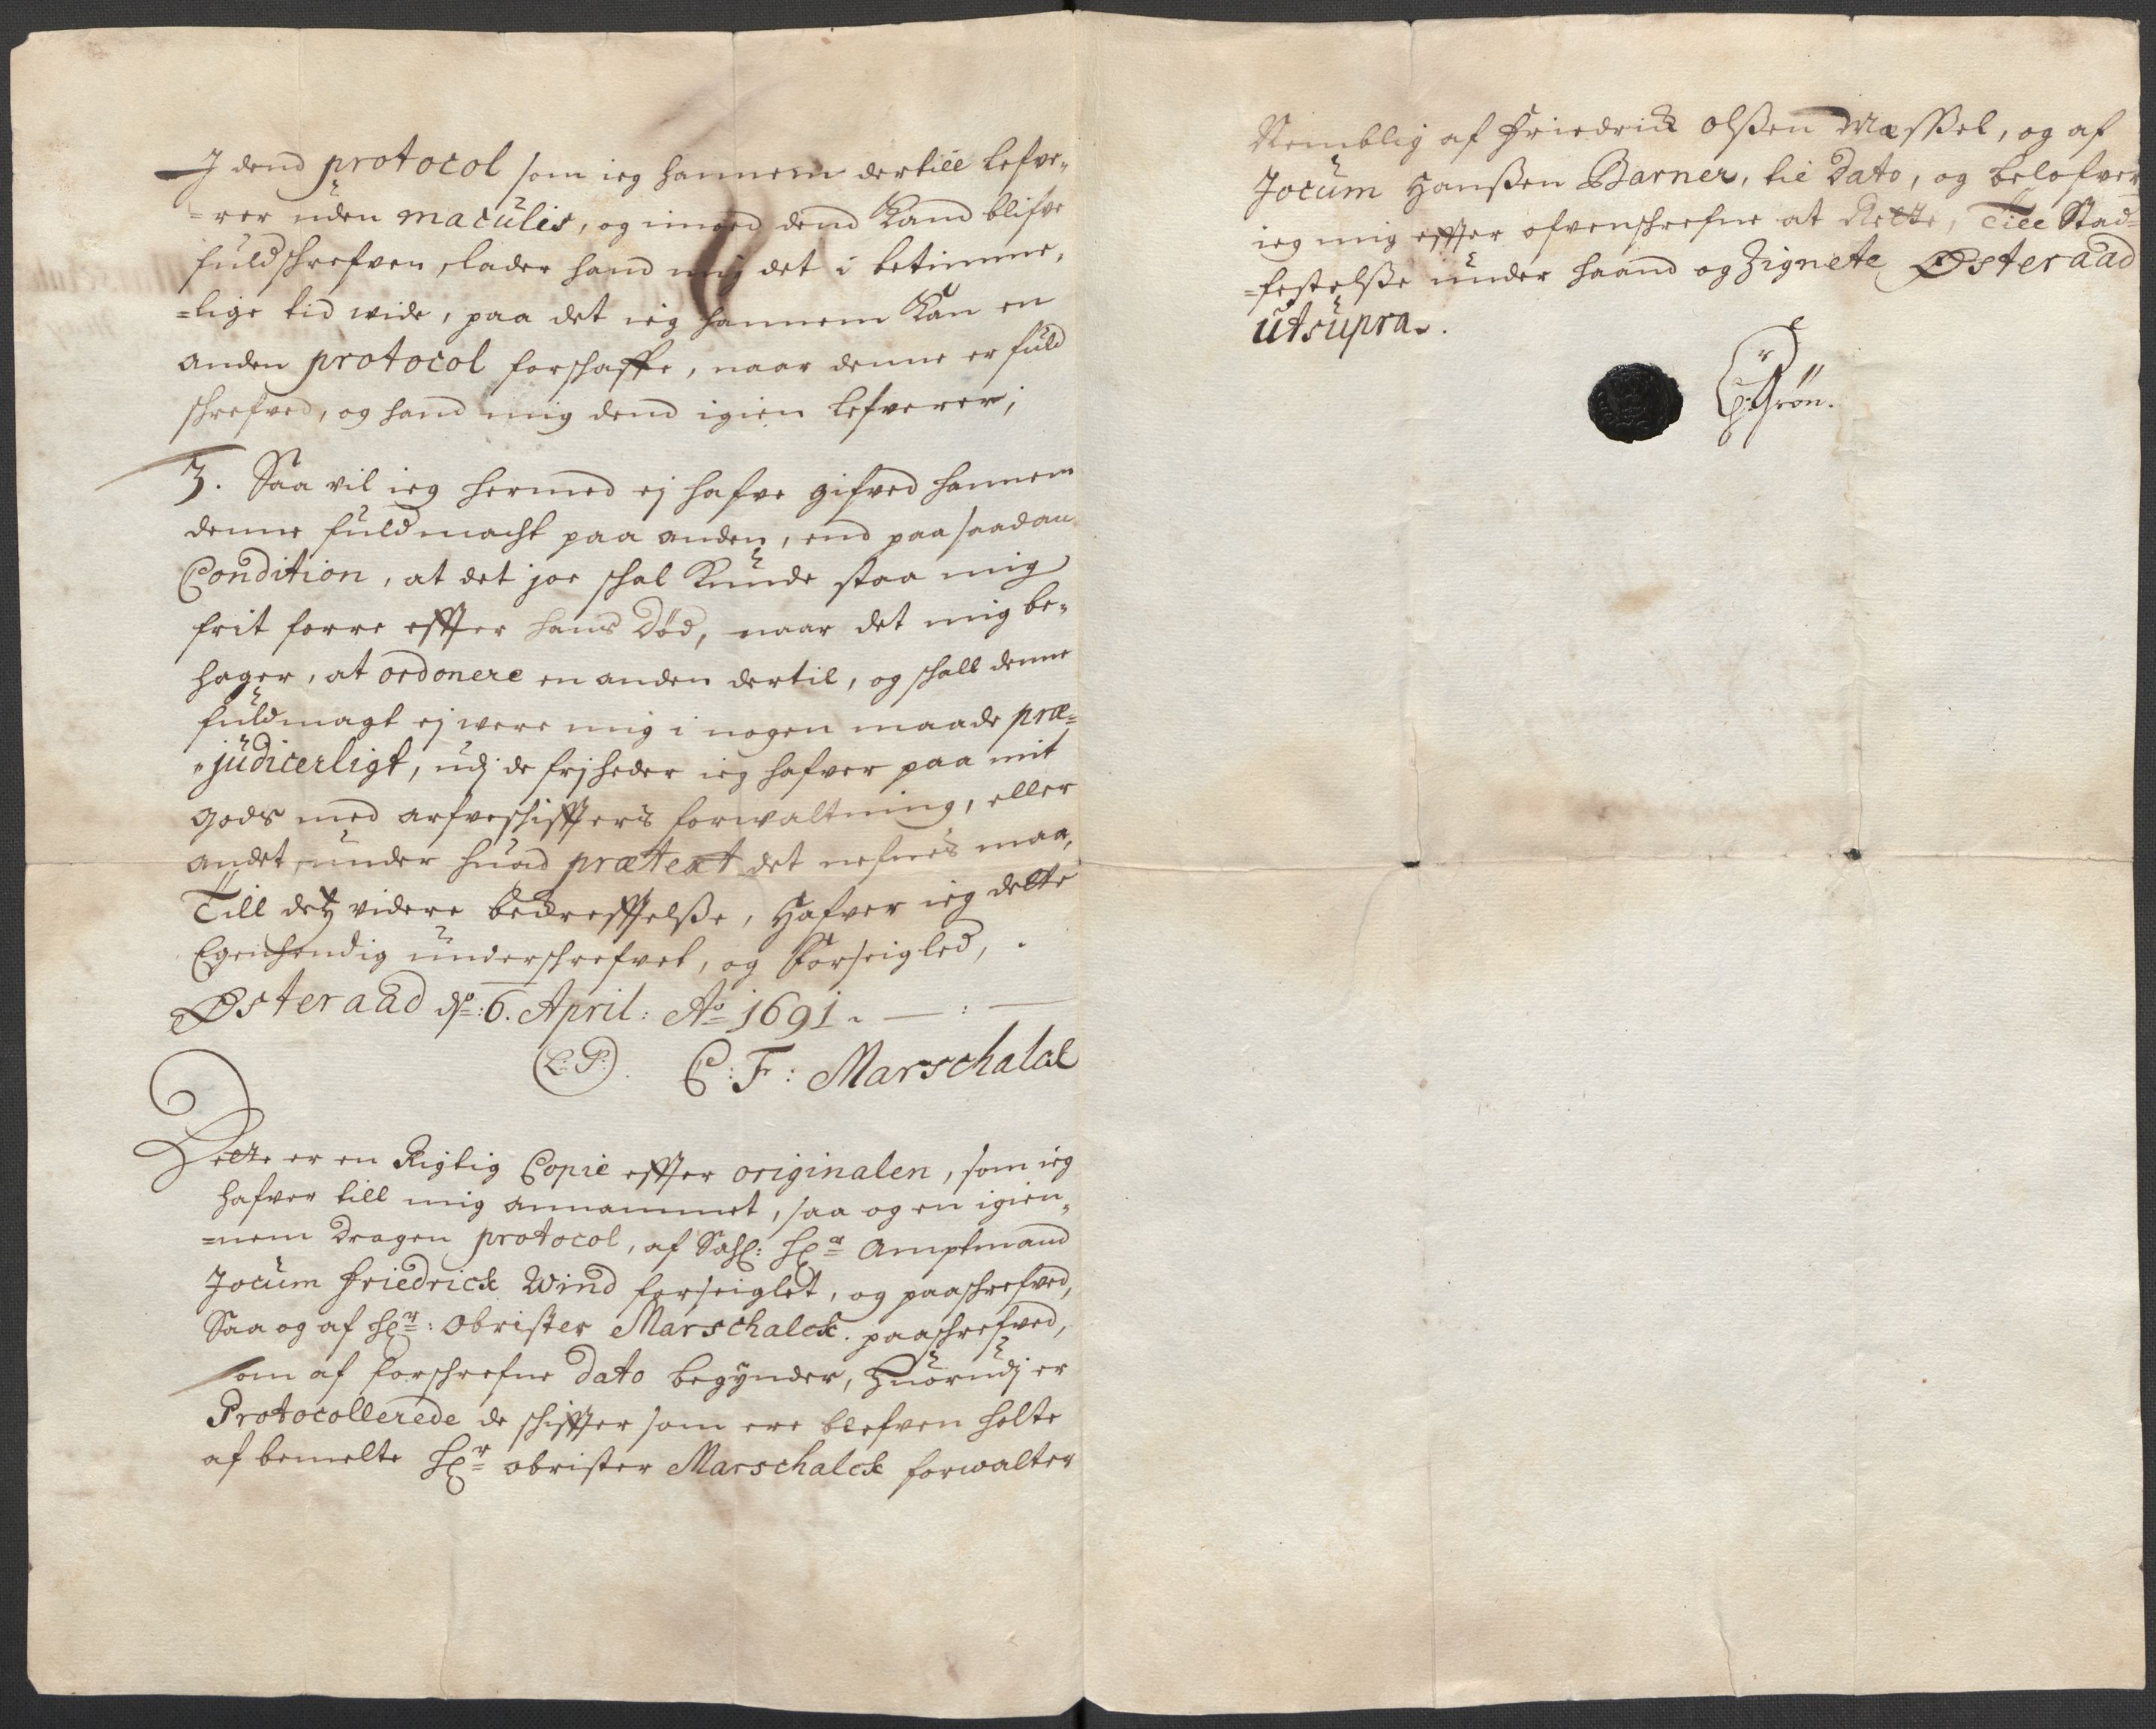 I dend protocol som ieg hannem dertill lefve„
=rer uden maculis, og imoed dend Kand blifve
fuldschrefven, lader hand mig det i betimme„
=lige tid wide, paa det ieg hannem Kan en
anden protocol forschaffe, naar denne er fuld
schrefved, og hand mig dend igien lefverer;
3. Saa vil ieg hermed ej hafve gifved hannem
denne fuldmacht paa anden, end paa saadan
Condition, at det joe schal Kunde staa mig
frit forre effter hans Død, naar det mig be„
hager, at ordonere en anden dertil, og schall denne
fuldmagt ej were mig i nogen maade præ=
„judicerligt, udj de frjheder ieg hafver paa mit
gods med arfveschiffters forwaltning, eller
andet, under huad prætext det nefnes maa,
Till detz videre bedrefftelsße, Hafver ieg dette
Egenhendig underschrefvet, og Forseigled,
Østeraad dn: 6. April: Ao 1691.
(L:S:). C: F: Marschalck
Dette er en Rigtig Copie effter originalen, som ieg
hafver till mig annammet, saa og en igien„
=nem Dragen protocol, af Sahl: Hr Amptmand
Jocum Friedrick Wind forseiglet, og paaschrefved,
Saa og af Hr: Obrister Marschalck paaschrefved,
som af forschrefne Dato begynder, Huorudj er
Protocollerede de schiffter som ere blefven holte
af bemelte Hr obrister Marschalck forwalter
Nemblig af Friedrick Olsßen Mæssel, og af
Jocum Hansßen Barner, til Dato, og belofver
ieg mig effter ofvenschrefne at Rette, Till Stad=
=festelsße under haand og Zignete Østeraad
utsupra.
Grön.